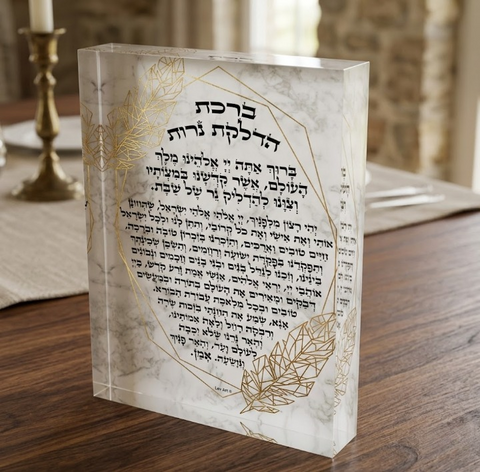 ברכת
הדלקת נרות
בָּרוּךְ אַתָּה יְיָ אֱלֹהֵינוּ מֶלֶךְ
הָעוֹלָם, אֲשֶׁר קִדְּשָׁנוּ בְּמִצְוֹתָיו
וְצִוָּנוּ לְהַדְלִיק נֵר שֶׁל שַׁבָּת.
יְהִי רָצוֹן מִלְּפָנֶיךָ, יְיָ אֱלֹהַי אֱלֹהֵי יִשְׂרָאֵל, שֶׁתְּחוֹנֵן
אוֹתִי וְאֶת אִישִׁי וְאֶת כָּל קְרוֹבַי, וְתִתֵּן לָנוּ וּלְכָל יִשְׂרָאֵל
חַיִּים טוֹבִים וַאֲרֻכִּים, וְתִזְכְּרֵנוּ בְּזִכְרוֹן טוֹבָה וּבְרָכָה,
וְתִפְקְדֵנוּ בִּפְקֻדַּת יְשׁוּעָה וְרַחֲמִים, וְתַשְׁכֵּן שְׁכִינָתְךָ
בֵּינֵינוּ, וְזַכֵּנוּ לְגַדֵּל בָּנִים וּבְנֵי בָנִים חֲכָמִים וּנְבוֹנִים
אוֹהֲבֵי יְיָ, יִרְאֵי אֱלֹהִים, אַנְשֵׁי אֱמֶת וְזֶרַע קֹדֶשׁ, בַּיְיָ
דְּבֵקִים וּמְאִירִים אֶת הָעוֹלָם בְּתוֹרָה וּבְמַעֲשִׂים
טוֹבִים וּבְכָל מְלֶאכֶת עֲבוֹדַת הַבּוֹרֵא.
אָנָּא, שְׁמַע אֶת תְּחִנָּתִי בִּזְכוּת שָׂרָה
וְרִבְקָה רָחֵל וְלֵאָה אִמּוֹתֵינוּ,
וְהָאֵר נֵרֵנוּ שֶׁלֹּא יִכְבֶּה
לְעוֹלָם וָעֶד, וְהָאֵר פָּנֶיךָ
וְנִוָּשֵׁעָה. אָמֵן.